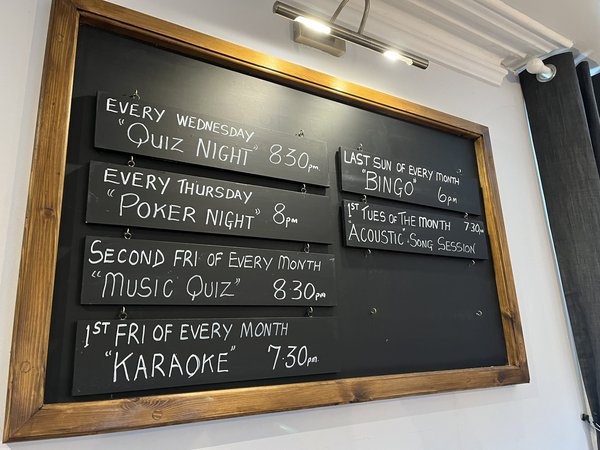 EVERY WEDNESDAY
"QUIZ NIGHT" 830pm
EVERY THURSDAY
"POKER NIGHT" 8pm
SECOND FRI OF EVERY MONTH
"MUSIC QUIZ" 8.30pm
1ST FRI OF EVERY MONTH
"KARAOKE" 7.30pm
LAST SUN OF EVERY MONTH
"BINGO" 6pm
1ST TUES OF THE MONTH 7.30pm
ACOUSTIC" SONG SESSION